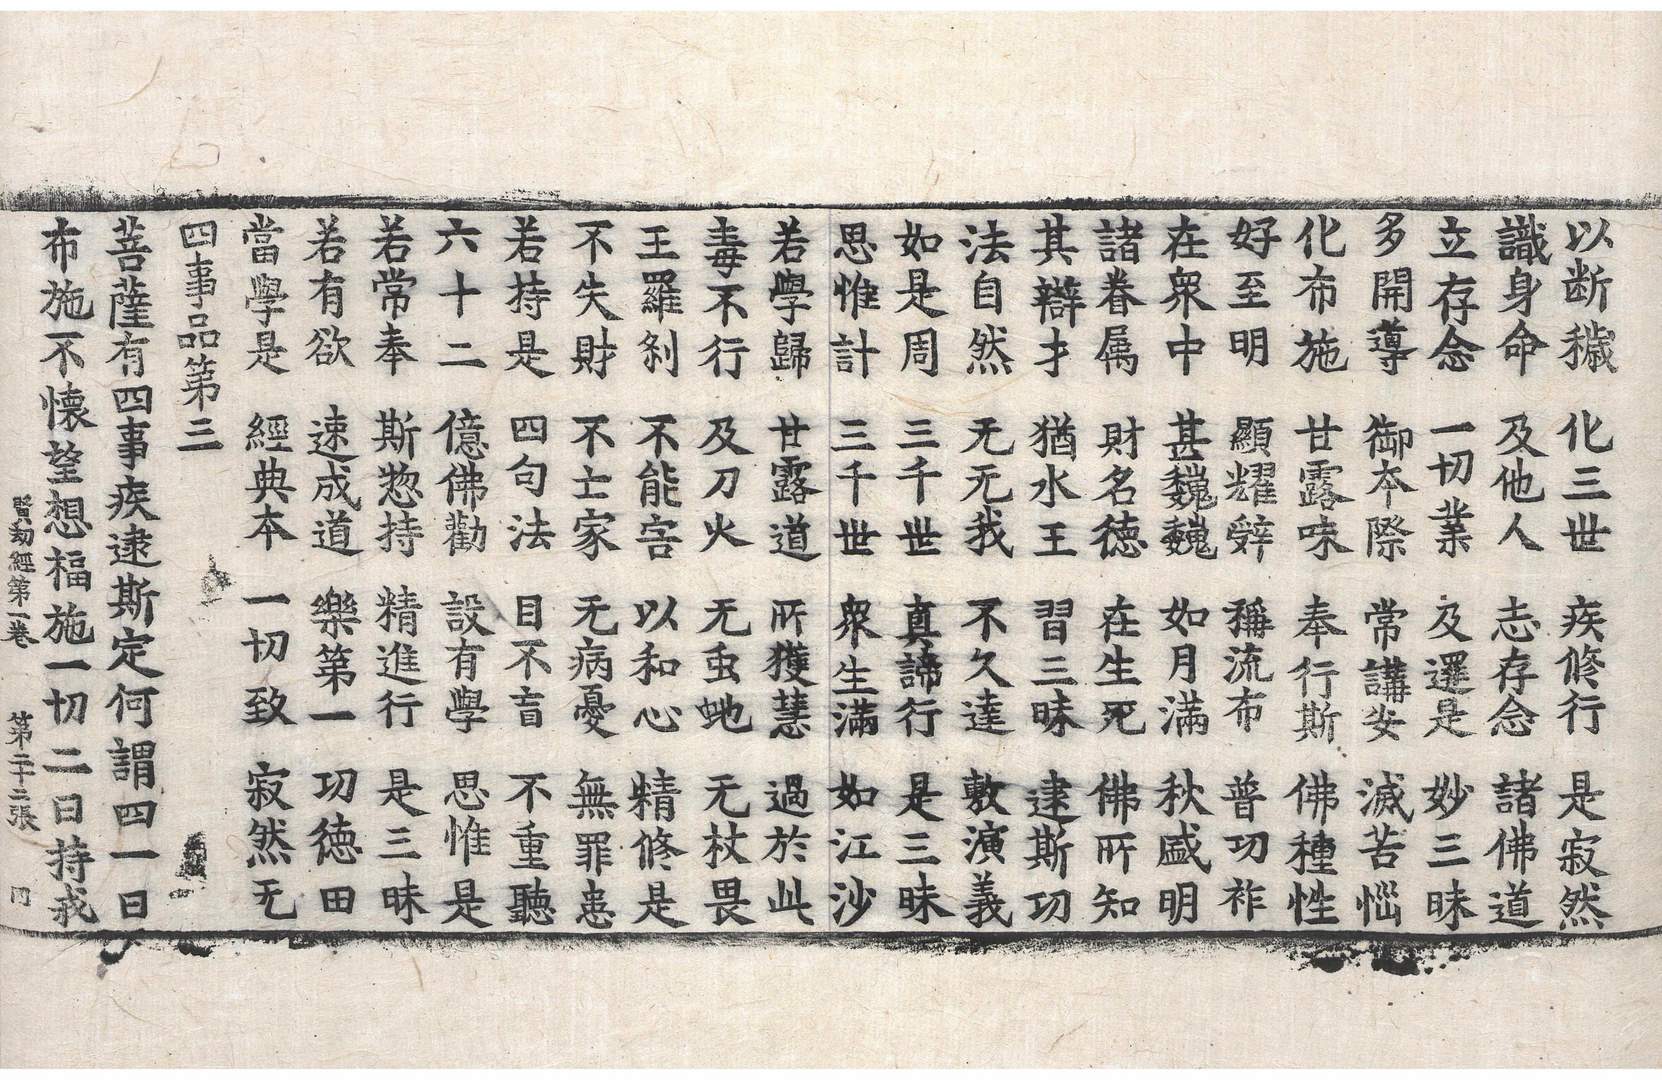 以断穢　化三世　疾修行　是寂然
識身命　及他人　志存念　諸佛道
立存念　一切業　及還是　妙三昧
多開導　御本際　常講安　滅苦惱
化布施　甘露味　奉行斯　佛種性
好至明　顯耀辤　稱流布　普功祚
在衆中　甚巍巍　如月滿　秋盛明
諸眷属　財名德　在生死　佛所知
其辯才　猶水王　習三昧　逮斯功
法自然　无无我　不久達　敷演義
如是周　三千世　真諦行　是三昧
思惟計　三千世　衆生滿　如江沙
若學歸　甘露道　所獲慧　過於此
毒不行　及刀火　无虫虵　无杖畏
王羅剎　不能害　以和心　精修是
不失財　不士家　无病憂　無罪恚
若持是　四句法　目不盲　不重聽
六十二　億佛勸　設有學　思惟是
若常奉　斯惣持　精進行　是三昧
若有欲　速成道　樂第一　功德田
當學是　經典本　一切致　寂然无
四事品第三
菩薩有四事疾逮斯定何謂四一曰
布施不懷望想福施一切二曰持戒
賢劫經第一卷　第二十二張　同